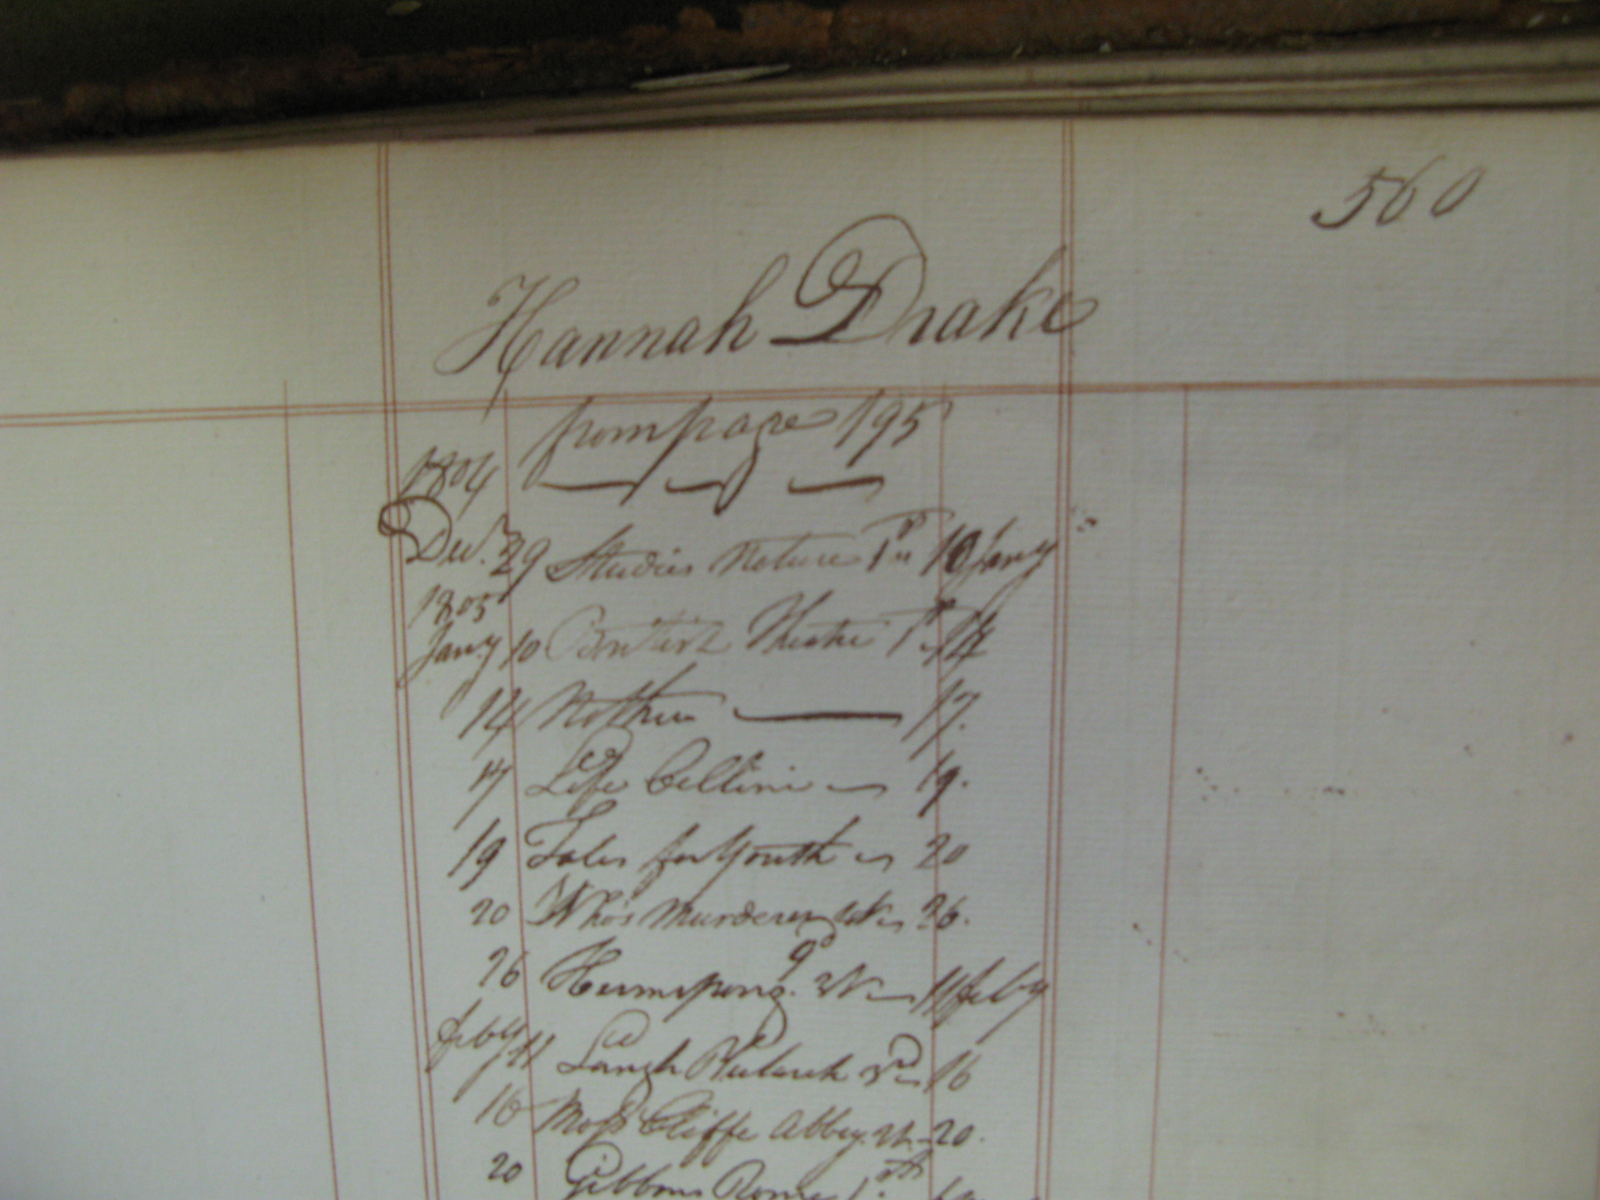 560
Hannah Drake
from page 195
1804
Decr. 29 Studies Nature 1st 10 Jany
1805
Jany 10 British Theatre 1st 14
14 17.
17 Life Cellini 19.
19 Tales for Youth 20
20 Who's Murderer 26.
26 Hermsprong. 11 feby
feby 11 Langh Plutarch 16
16 Moss Cliffe Abbey. 20.
20 Gibbons Rome 1st